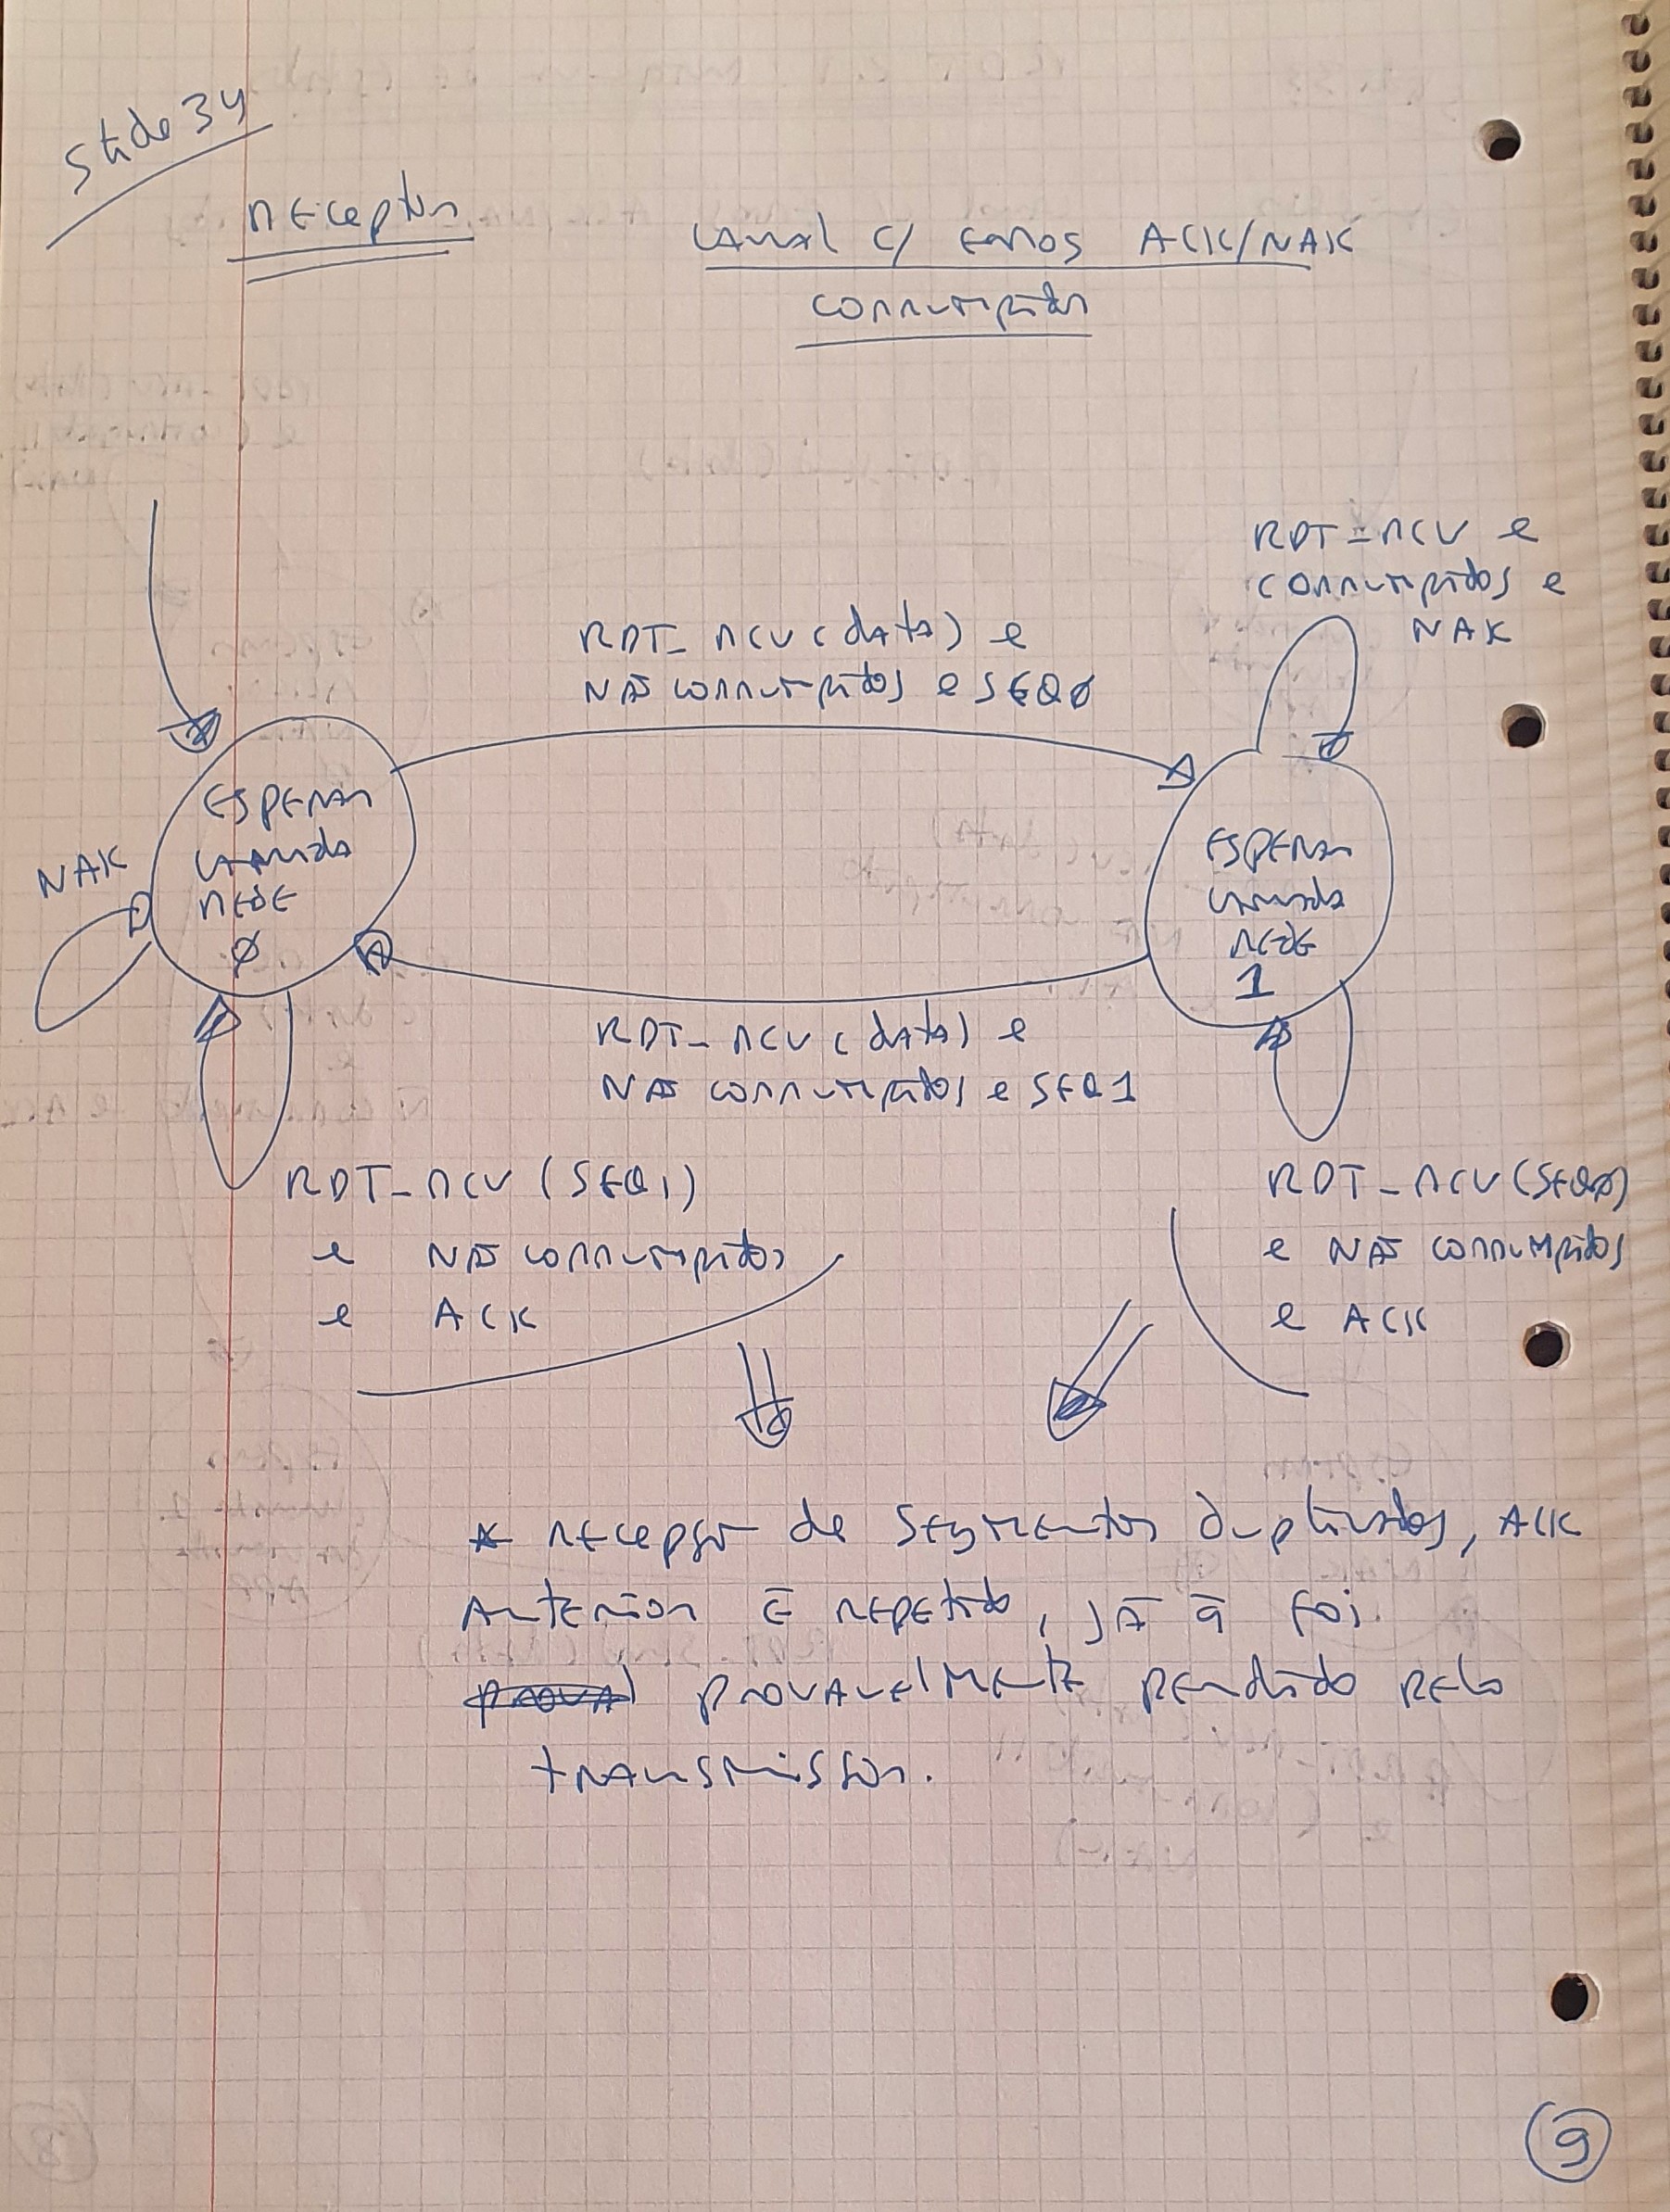 Slide 34
Receptor
Canal c/ erros ACK/NAK
corrompidos
RDT_rcv e
corrompidos e
NAK
RDT_rcv (data) e
Não corrompidos e SEQ0
Esperar
camada
rede
0
NAK
Esperar
camada
rede
1
RDT_rcv (data) e
Não corrompidos e SEQ1
RDT_rcv (SEQ1)
e Não corrompidos
e ACK
RDT_rcv (SEQ0)
e Não corrompidos
e ACK
* recepção de segmentos duplicados, ACK
anterior é repetido, já q̄ foi
provavelmente perdido pelo
transmissor.
9